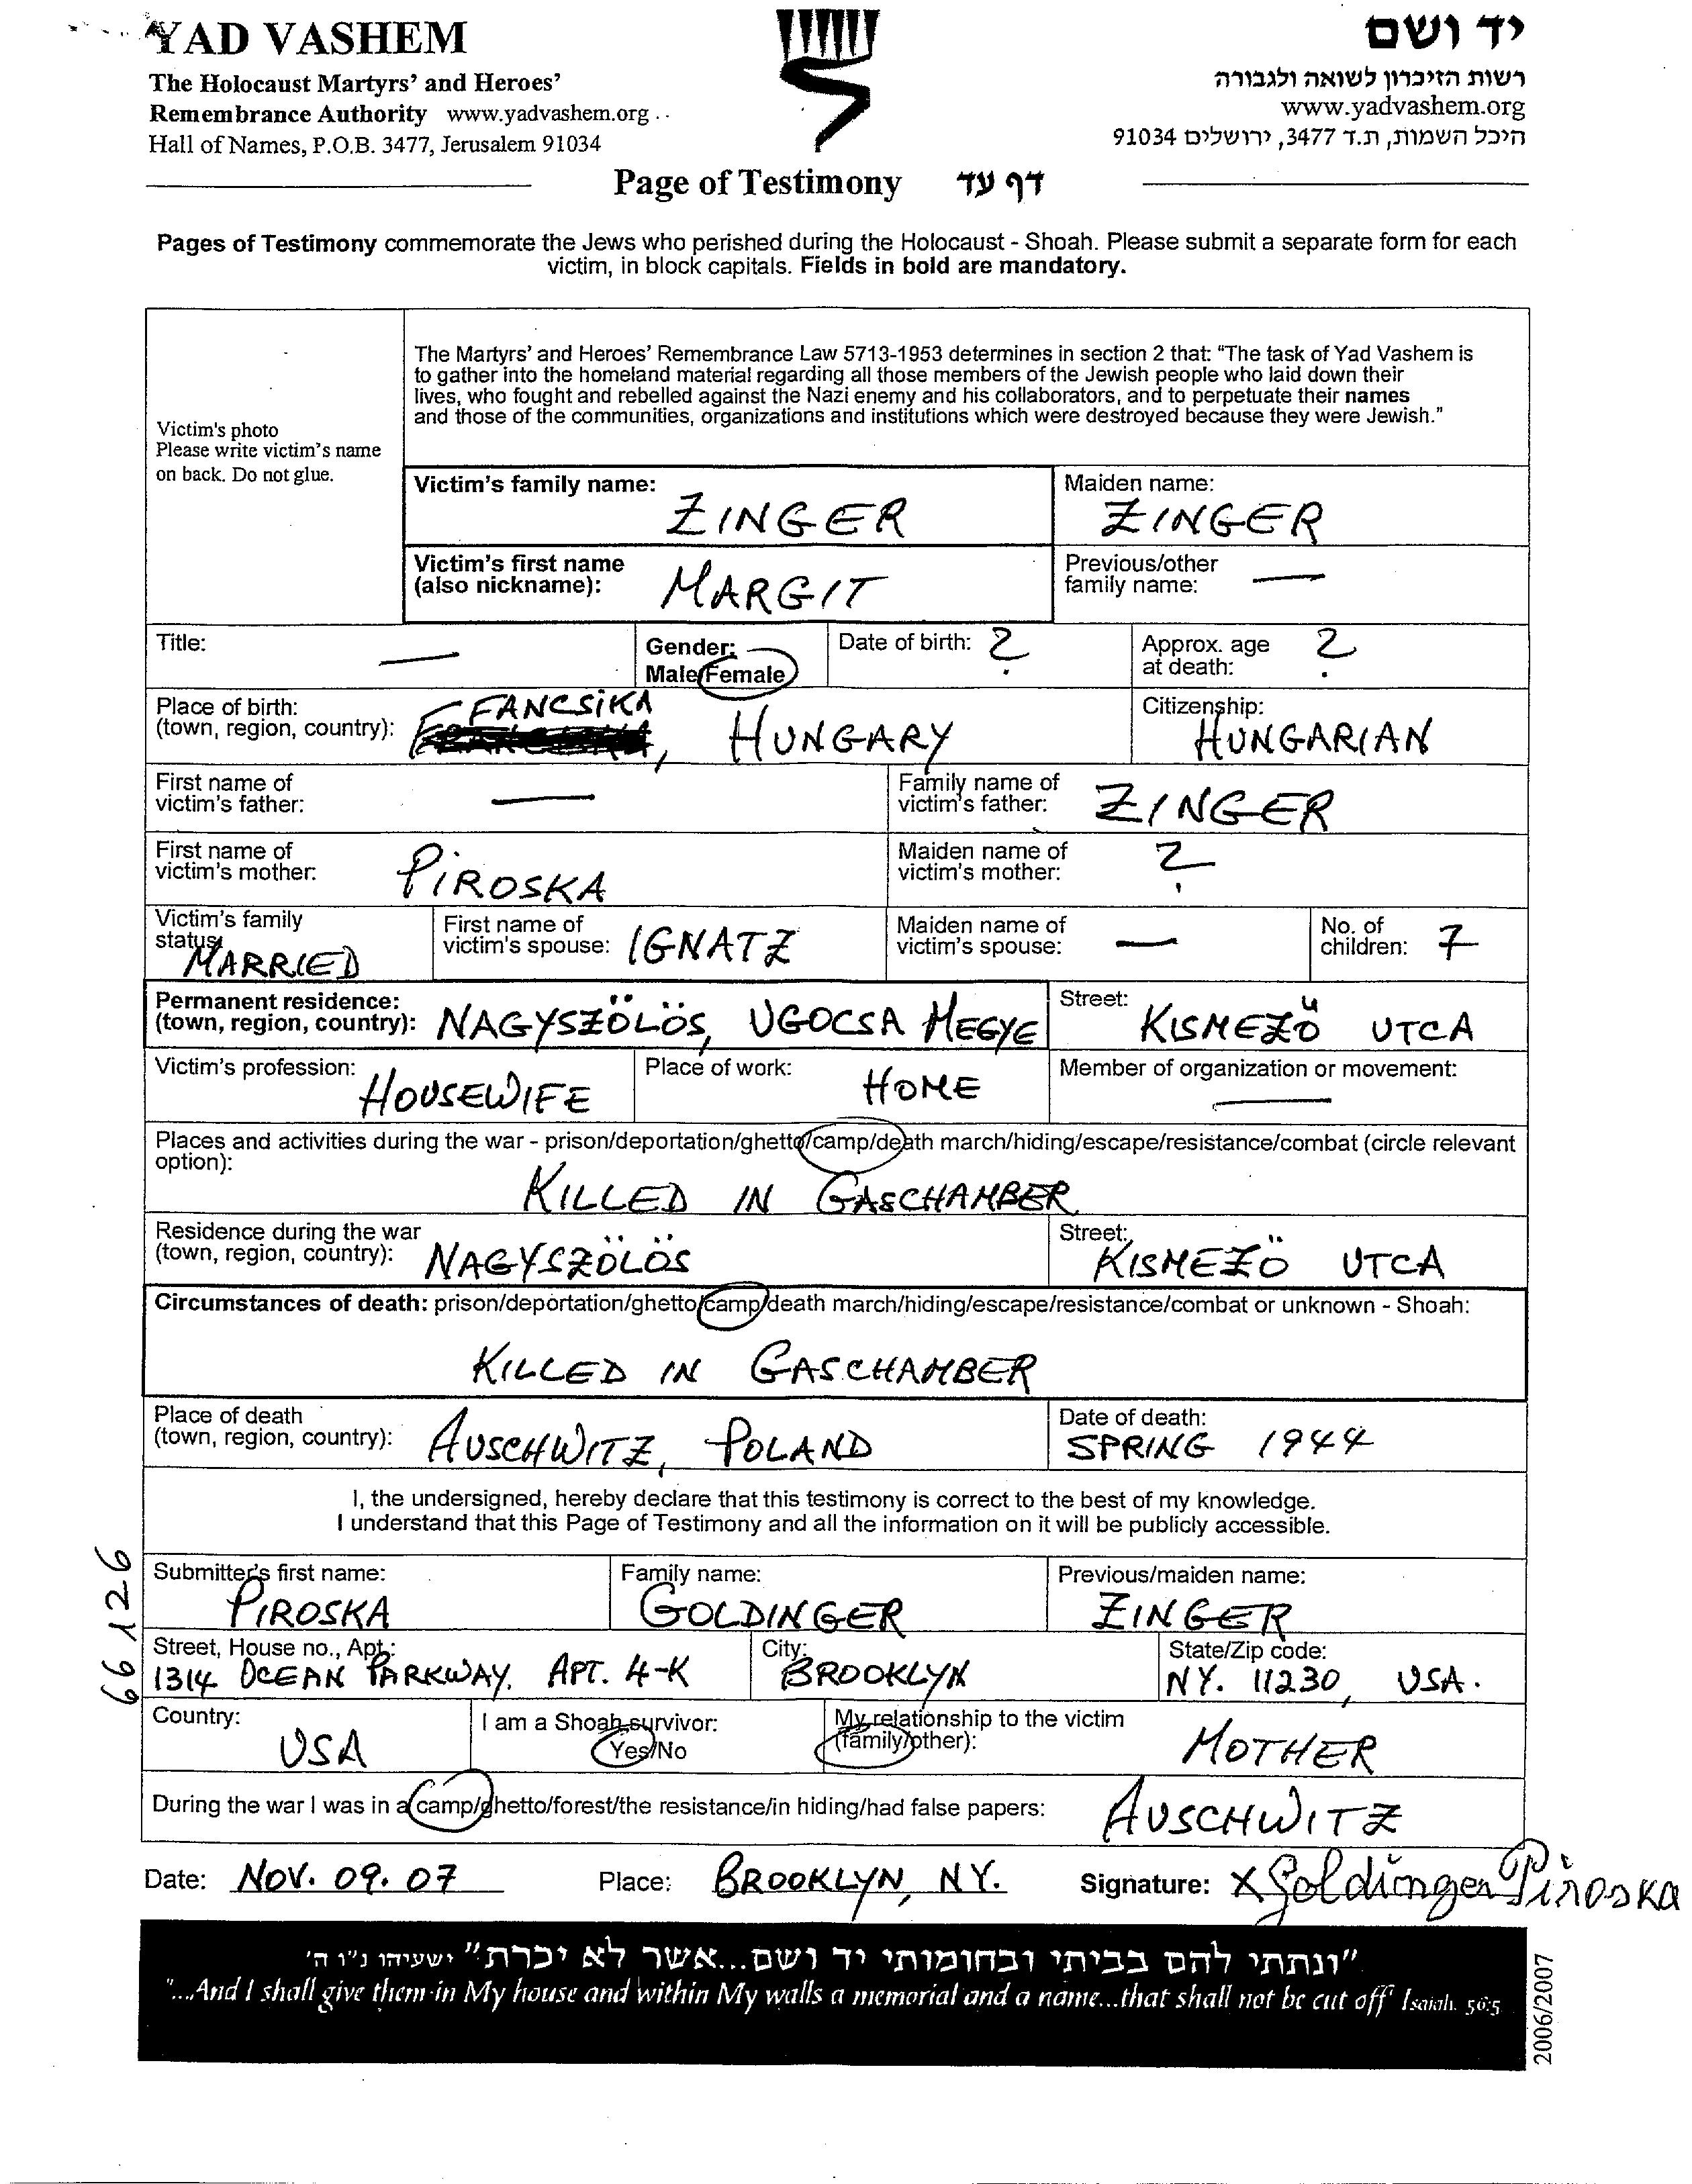 YAD VASHEM
The Holocaust Martyrs' and Heroes'
Remembrance Authority www.yadvashem.org
Hall of Names, P.O.B. 3477, Jerusalem 91034
יד ושם
רשות הזיכרון לשואה ולגבורה
www.yadvashem.org
היכל השמות, ת.ד 3477, ירושלים 91034
Page of Testimony דף עד
Pages of Testimony commemorate the Jews who perished during the Holocaust - Shoah. Please submit a separate form for each
victim, in block capitals. Fields in bold are mandatory.
Victim's photo
Please write victim's name
on back. Do not glue.
The Martyrs' and Heroes' Remembrance Law 5713-1953 determines in section 2 that: "The task of Yad Vashem is
to gather into the homeland material regarding all those members of the Jewish people who laid down their
lives, who fought and rebelled against the Nazi enemy and his collaborators, and to perpetuate their names
and those of the communities, organizations and institutions which were destroyed because they were Jewish."
Victim's family name: ZINGER
Maiden name: ZINGER
Victim's first name
(also nickname): MARGIT
Previous/other
family name: —
Title: —
Gender:
Male/Female
Date of birth: ?
Approx. age
at death: ?
Place of birth:
(town, region, country): FANCSIKA, HUNGARY
Citizenship:
HUNGARIAN
First name of
victim's father: —
Family name of
victim's father: ZINGER
First name of
victim's mother: PIROSKA
Maiden name of
victim's mother: ?
Victim's family
status: MARRIED
First name of
victim's spouse: IGNATZ
Maiden name of
victim's spouse: —
No. of
children: 7
Permanent residence:
(town, region, country): NAGYSZÖLÖS, UGOCSA MEGYE
Street: KISMEZŐ UTCA
Victim's profession: HOUSEWIFE
Place of work: HOME
Member of organization or movement:
—
Places and activities during the war - prison/deportation/ghetto/camp/death march/hiding/escape/resistance/combat (circle relevant
option):
KILLED IN GASCHAMBER
Residence during the war
(town, region, country): NAGYSZÖLÖS
Street: KISMEZÖ UTCA
Circumstances of death: prison/deportation/ghetto/camp/death march/hiding/escape/resistance/combat or unknown - Shoah:
KILLED IN GASCHAMBER
Place of death
(town, region, country): AUSCHWITZ, POLAND
Date of death:
SPRING 1944
I, the undersigned, hereby declare that this testimony is correct to the best of my knowledge.
I understand that this Page of Testimony and all the information on it will be publicly accessible.
66126
Submitter's first name: PIROSKA
Family name: GOLDINGER
Previous/maiden name: ZINGER
Street, House no., Apt.:
1314 OCEAN PARKWAY. APT. 4-K
City: BROOKLYN
State/Zip code:
NY. 11230, USA.
Country: USA
I am a Shoah survivor:
Yes/No
My relationship to the victim
(family/other): MOTHER
During the war I was in a camp/ghetto/forest/the resistance/in hiding/had false papers: AUSCHWITZ
Date: NOV. 09. 07
Place: BROOKLYN, NY.
Signature: X Goldinger Piroska
"ונתתי להם בביתי ובחומותי יד ושם...אשר לא יכרת" ישעיהו נ"ו ה'
"...And I shall give them in My house and within My walls a memorial and a name...that shall not be cut off" Isaiah. 56:5
2006/2007